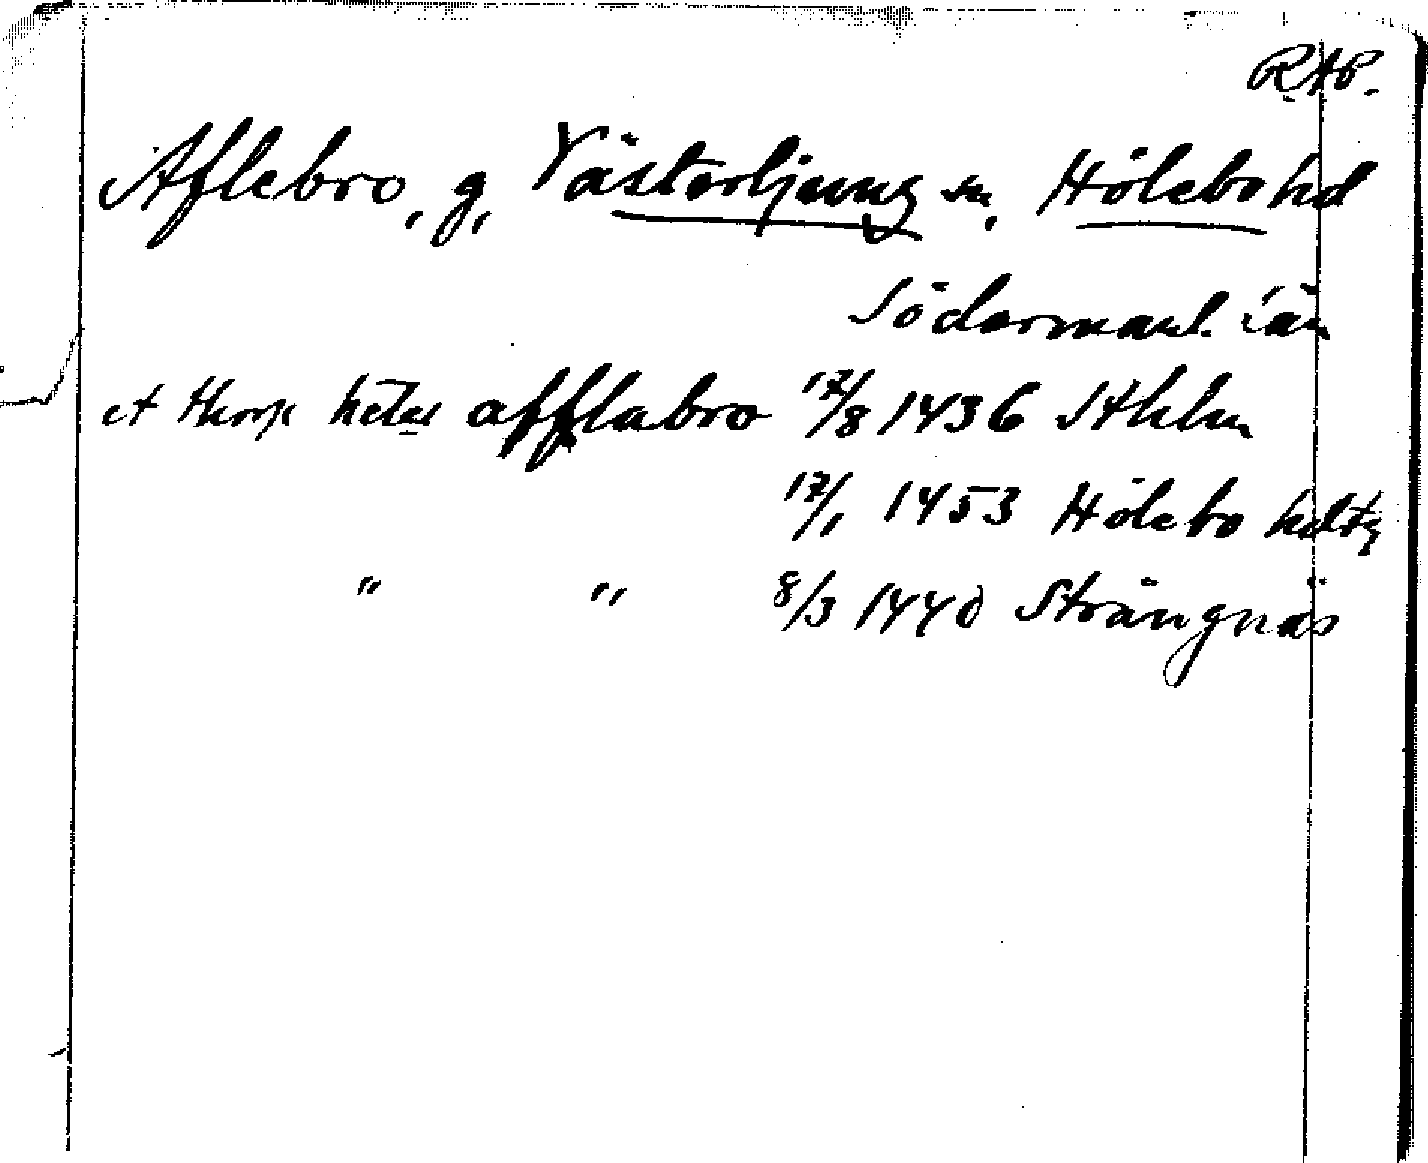 RAP.
Aflebro, g, Västerljung sn, Hölebo hd
Södermanl. län
et thorp heter afflabro 17/8 1436 Sthlm
17/1 1453 Hölebo hdtg
" " 8/3 1440 Strängnäs